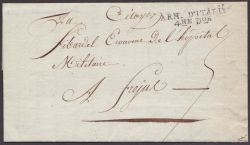 Au Citoyen
ARM. D'ITALIE
4ME DON
Sibardel Econome De l'hopital
Militaire
A frejus